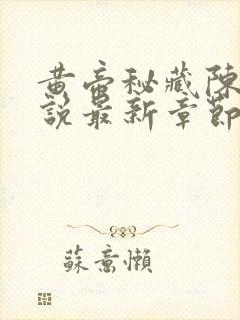 黄帝秘藏陳
說最新章節
蘇意懶